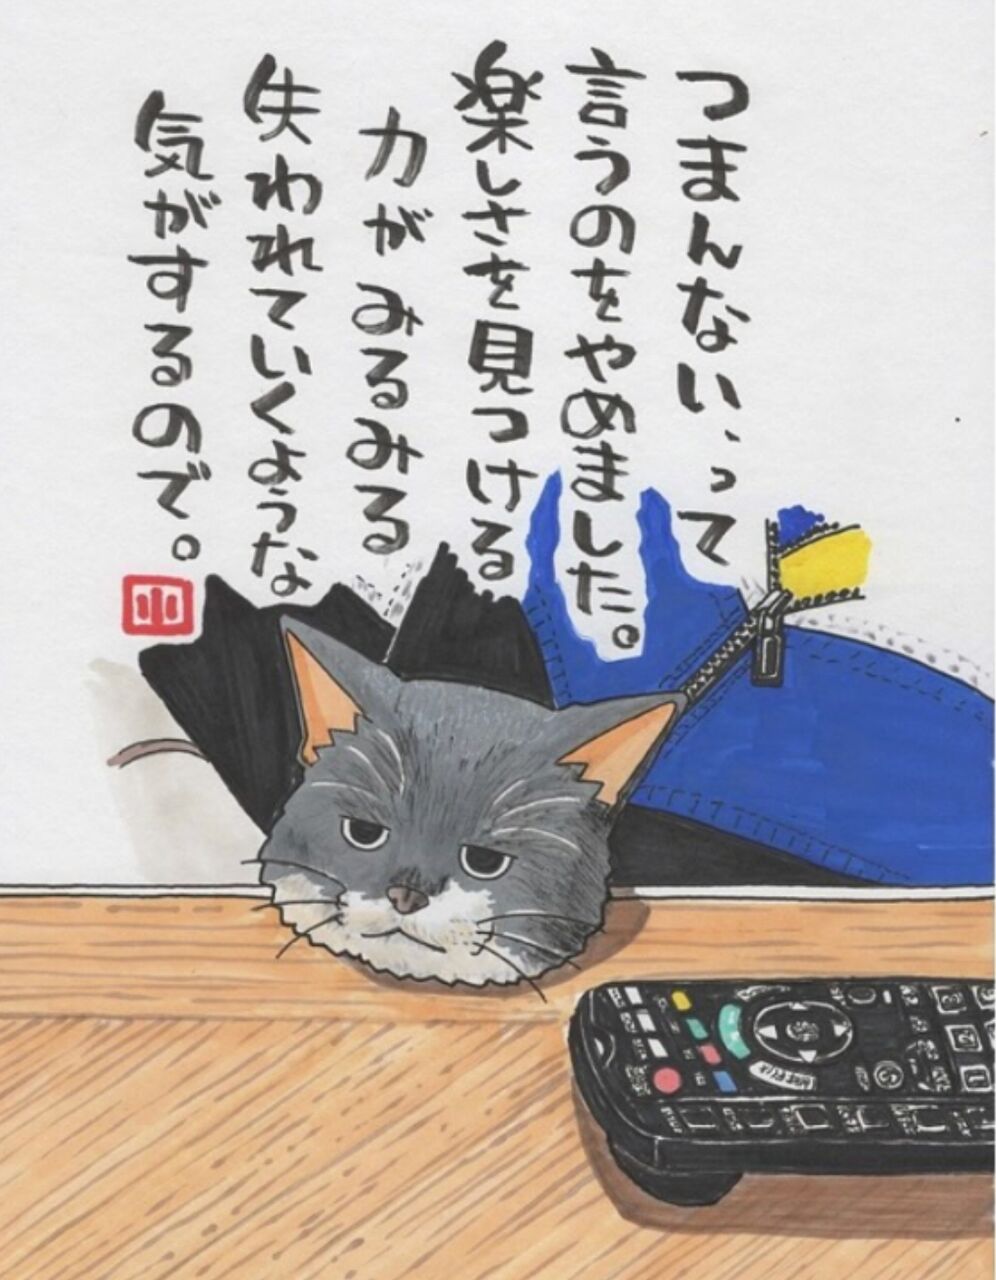 つまんない、って
言うのをやめました。
楽しさを見つける
力がみるみる
失われていくような
気がするので。